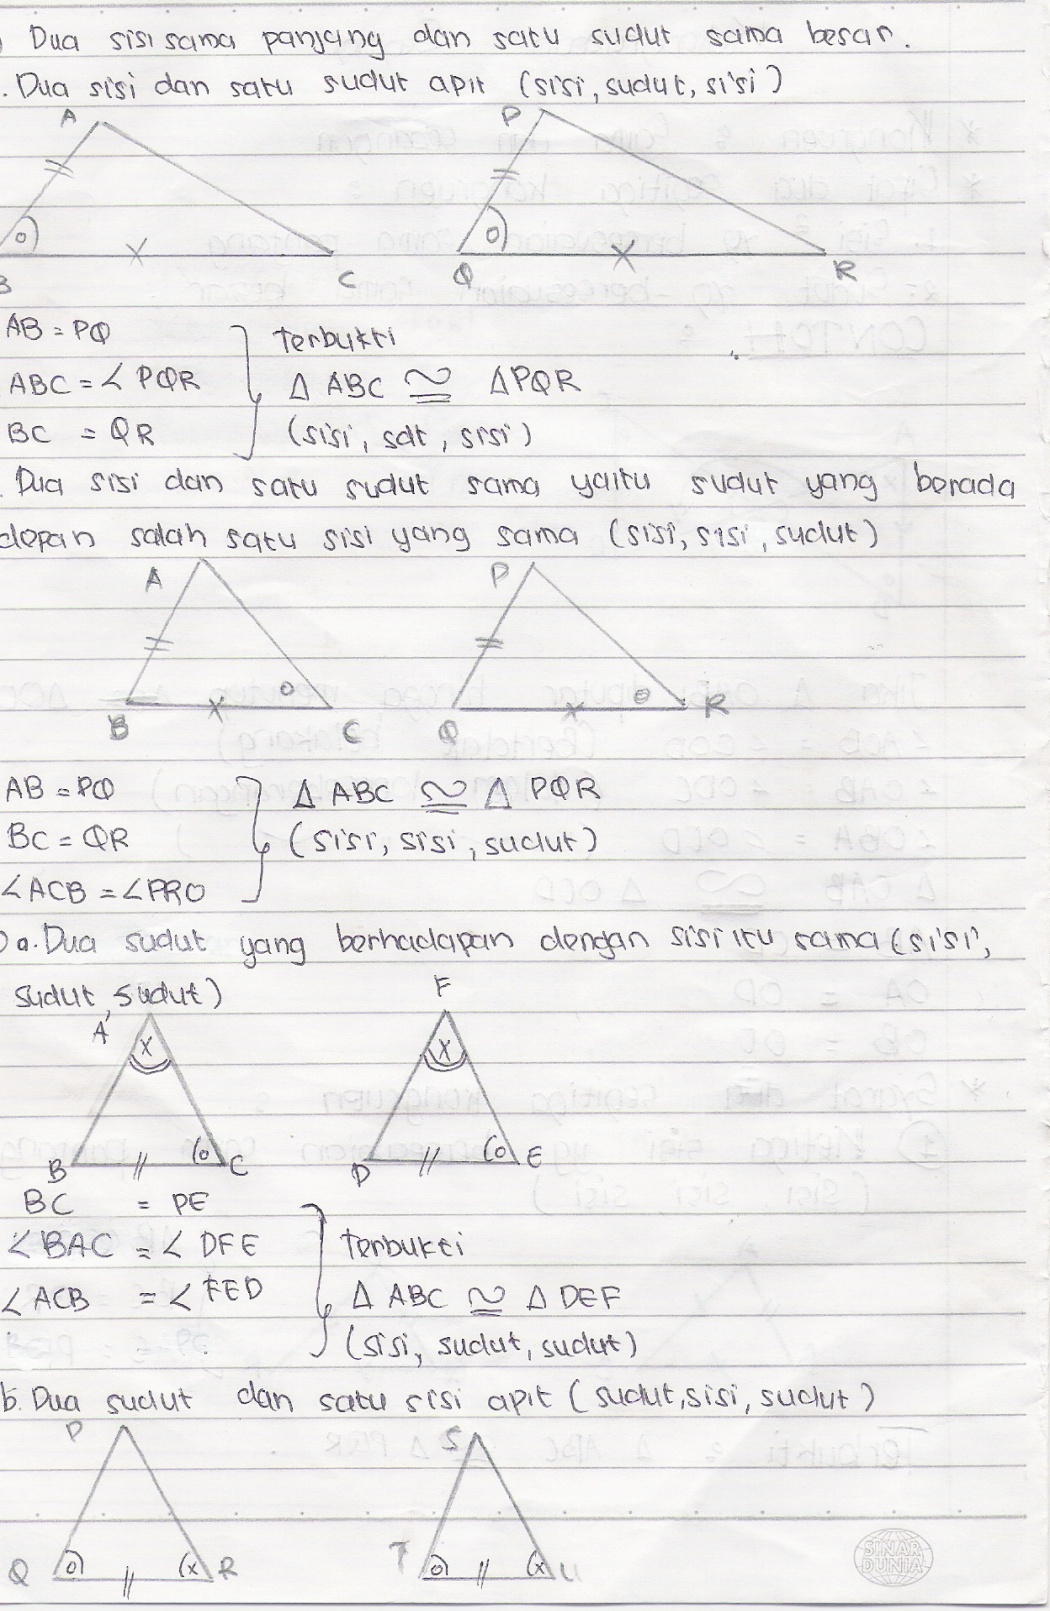 ) Dua sisi sama panjang dan satu sudut sama besar.
. Dua sisi dan satu sudut apit (sisi, sudut, sisi)
A P
B C Q R
AB = PQ terbukti
ABC = ∠ PQR Δ ABC ≅ ΔPQR
BC = QR (sisi, sdt, sisi)
. Dua sisi dan satu sudut sama yaitu sudut yang berada
depan salah satu sisi yang sama (sisi, sisi, sudut)
A P
B C Q R
AB = PQ Δ ABC ≅ Δ PQR
BC = QR (sisi, sisi, sudut)
∠ACB = ∠PRQ
) a. Dua sudut yang berhadapan dengan sisi itu sama (sisi,
sudut, sudut)
A F
x x
B o C D o E
BC = PE
∠BAC = ∠ DFE terbukti
∠ACB = ∠ FED Δ ABC ≅ Δ DEF
(sisi, sudut, sudut)
b. Dua sudut dan satu sisi apit (sudut, sisi, sudut)
P S
Q o x R T o x U
SINAR
DUNIA